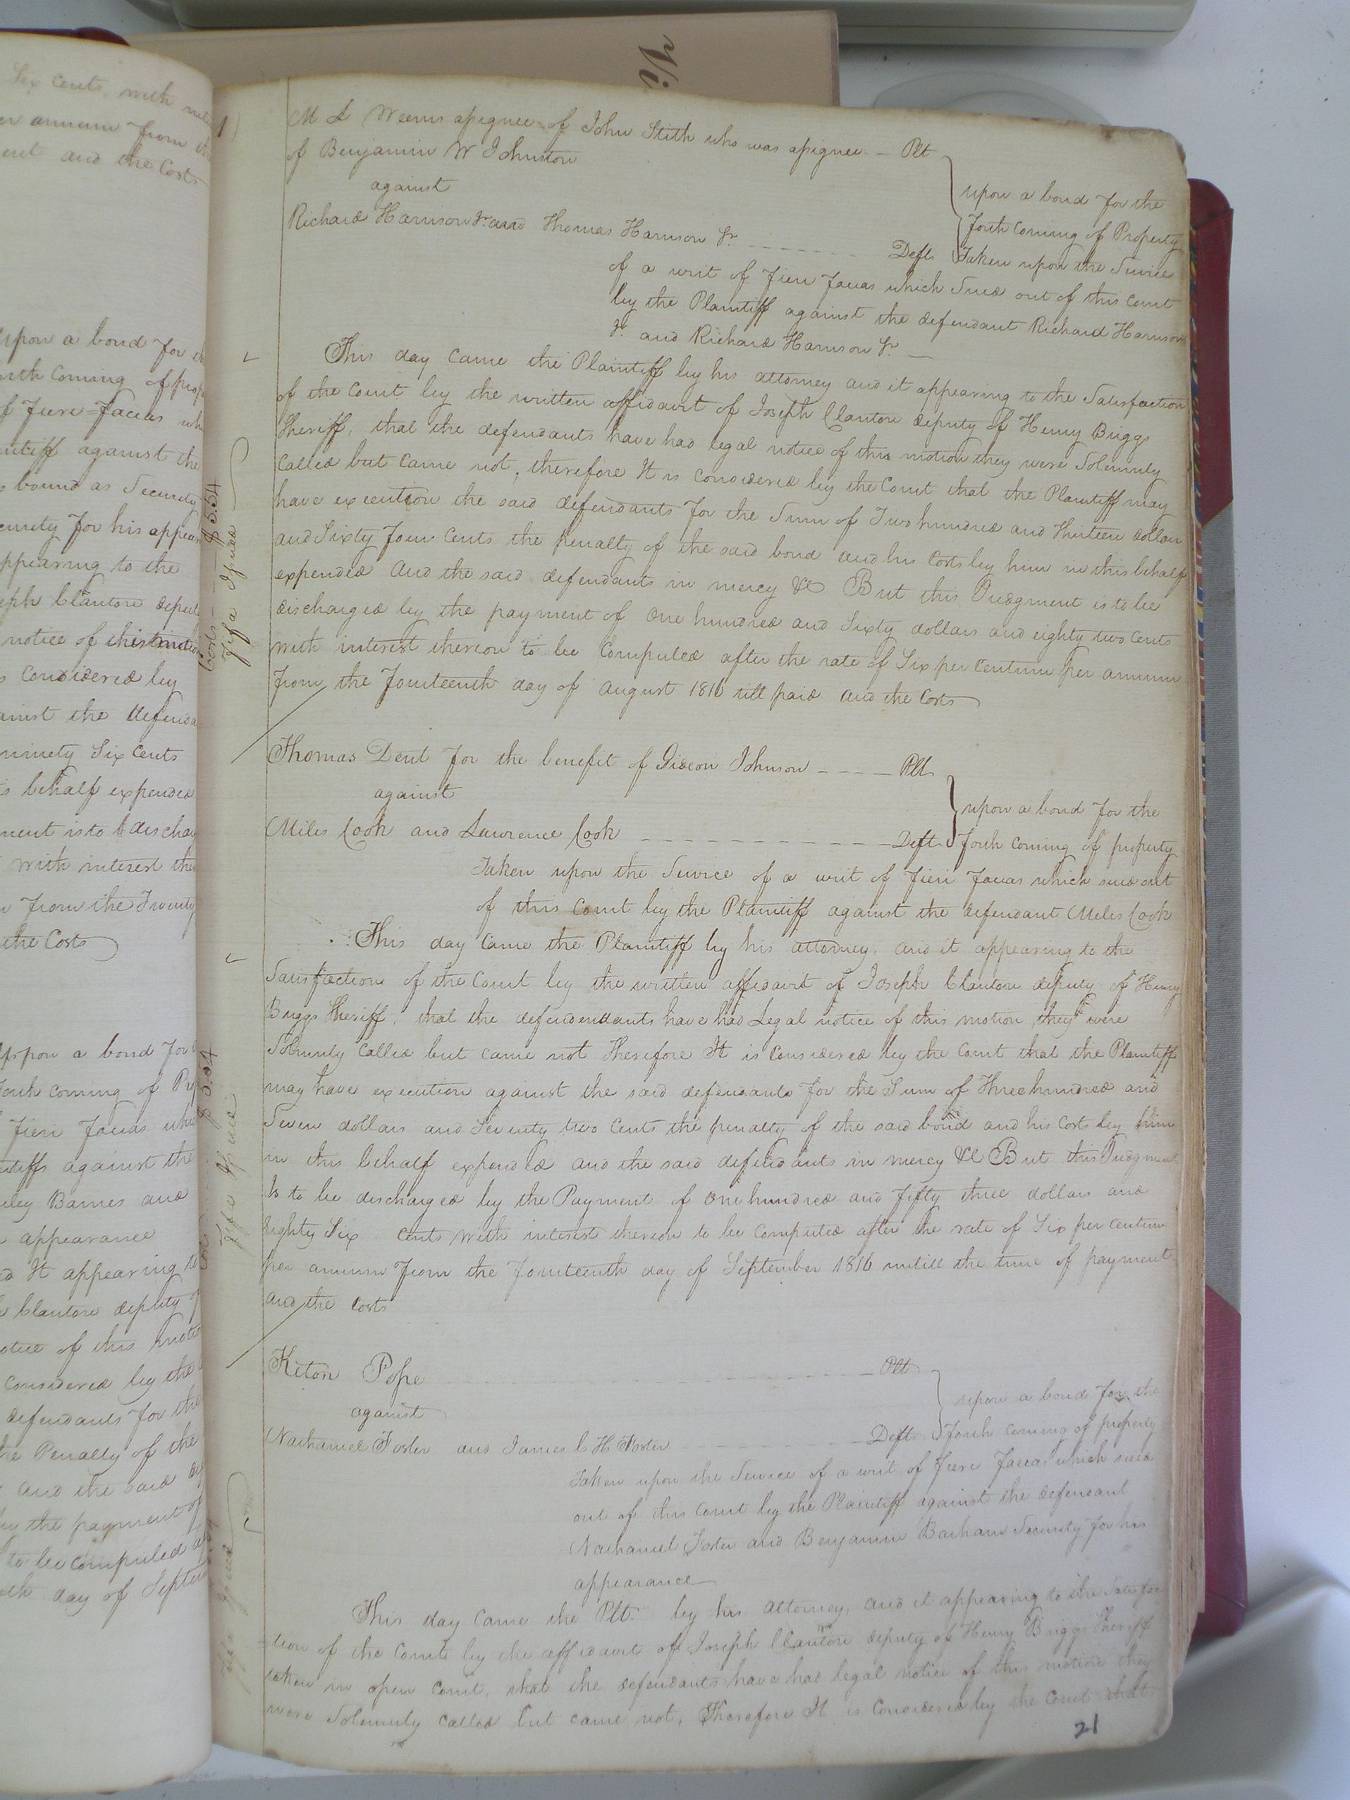 Six cents, with
annum from
and the Costs
upon a bond for
forth Coming of
Fieri = Facias
against the
bound as Security
Security for his
appearing to the
Clanton
notice of this motion
Considered by
against the
ninety Six Cents
behalf expended
is to be
with interest
from the Twenty
the Costs
Upon a bond for
forth coming of
Fieri Facias
against the
Barnes and
appearance
It appearing to
Clanton deputy
notice of this
Considered by the
defendants for the
the Penalty of the
and the said
by the payment of
to be computed
day of
M L Weems assignee of John Stith who was assignee — Plt
of Benjamin W Johnston
against
Richard Harrison Jr and Thomas Harrison Sr - - - - - Defts
upon a bond for the
forth coming of Property
Taken upon the Service
of a writ of Fieri Facias which Sued out of this Court
by the Plaintiff against the defendant Richard Harrison
Jr and Richard Harrison Sr —
This day came the Plaintiff by his attorney and it appearing to the Satisfaction
of the Court by the written affidavit of Joseph Clanton deputy of Henry Briggs
Sheriff, that the defendants have had legal notice of this motion they were Solemnly
Called but Came not, therefore It is Considered by the Court that the Plaintiff may
have execution the said defendants for the Sum of Two hundred and Thirteen dollars
and Sixty Four Cents the penalty of the said bond and his Costs by him in this behalf
expended And the said defendants in mercy &c But this Judgment is to be
discharged by the payment of one hundred and Sixty dollars and eighty two Cents
with interest thereon to be Computed after the rate of Six per Centum per annum
from the fourteenth day of august 1816 till paid and the Costs
Costs $5.54
Fifa Issued
Thomas Dent for the benefit of Gideon Johnson - - - Plt
against
Miles Cook and Lawrence Cook - - - - - - - - Defts
upon a bond for the
forth coming of property
Taken upon the Service of a writ of Fieri Facias which sued out
of this Court by the Plaintiff against the defendant Miles Cook
This day Came the Plaintiff by his attorney, and it appearing to the
Satisfaction of the Court by the written affidavit of Joseph Clanton deputy of Henry
Briggs Sheriff, that the defendendants have had Legal notice of this motion they were
Solemnly Called but came not Therefore It is Considered by the Court that the Plaintiff
may have execution against the said defendants for the Sum of Three hundred and
Seven dollars and Seventy two Cents the penalty of the said bond and his Costs by him
in this behalf expended and the said defendants in mercy &c But this Judgment
Is to be discharged by the Payment of one hundred and fifty three dollars and
Eighty Six Cents with interest thereon to be Computed after the rate of Six per Centum
per annum from the fourteenth day of September 1816 untill the time of payment
and the Costs
Fifa Issued
Kiton Pope - - - - - - - - Plt
against
Nathaniel Foster and James C H Foster - - - - - Defts
upon a bond for the
forth coming of property
Taken upon the Service of a writ of Fieri Facias which sued
out of this Court by the Plaintiff against the defendant
Nathaniel Foster and Benjamin Barham Security for his
appearance
This day Came the Plt. by his attorney, and it appearing to the Satisfac
=tion of the Court by the affidavit of Joseph Clanton deputy of Henry Briggs Sheriff
taken in open Court, that the defendants have had legal notice of this motion they
were Solemnly Called but came not, Therefore It is Considered by the Court that
Fifa Issued
21